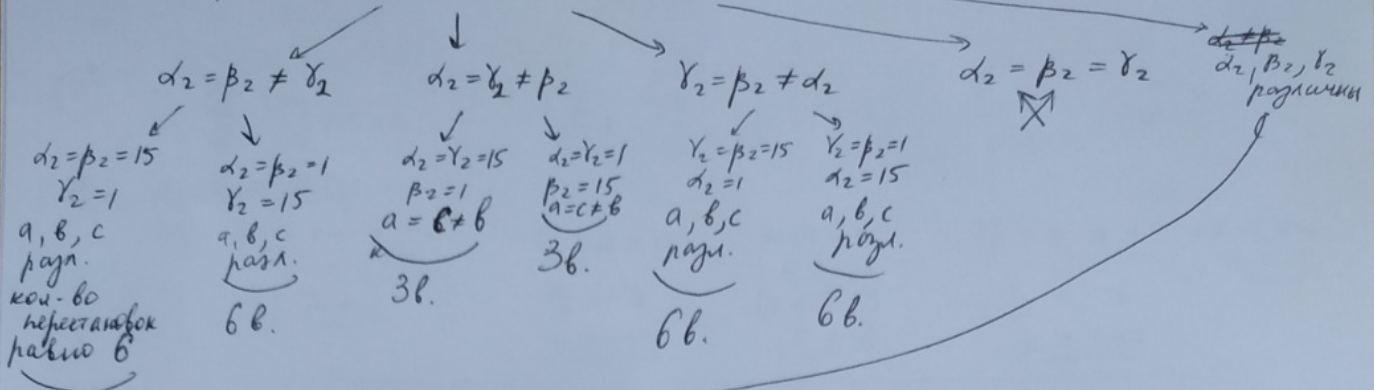 α₂ = β₂ ≠ γ₂
α₂ = γ₂ ≠ β₂
γ₂ = β₂ ≠ α₂
α₂ = β₂ = γ₂
α₂ ≠ β₂
α₂, β₂, γ₂
различны
α₂ = β₂ = 15
γ₂ = 1
а, в, с
разл.
кол-во
перестановок
равно 6
α₂ = β₂ = 1
γ₂ = 15
а, в, с
разл.
6 в.
α₂ = γ₂ = 15
β₂ = 1
а = с ≠ в
3 в.
α₂ = γ₂ = 1
β₂ = 15
а = с ≠ в
3 в.
γ₂ = β₂ = 15
α₂ = 1
а, в, с
разл.
6 в.
γ₂ = β₂ = 1
α₂ = 15
а, в, с
разл.
6 в.